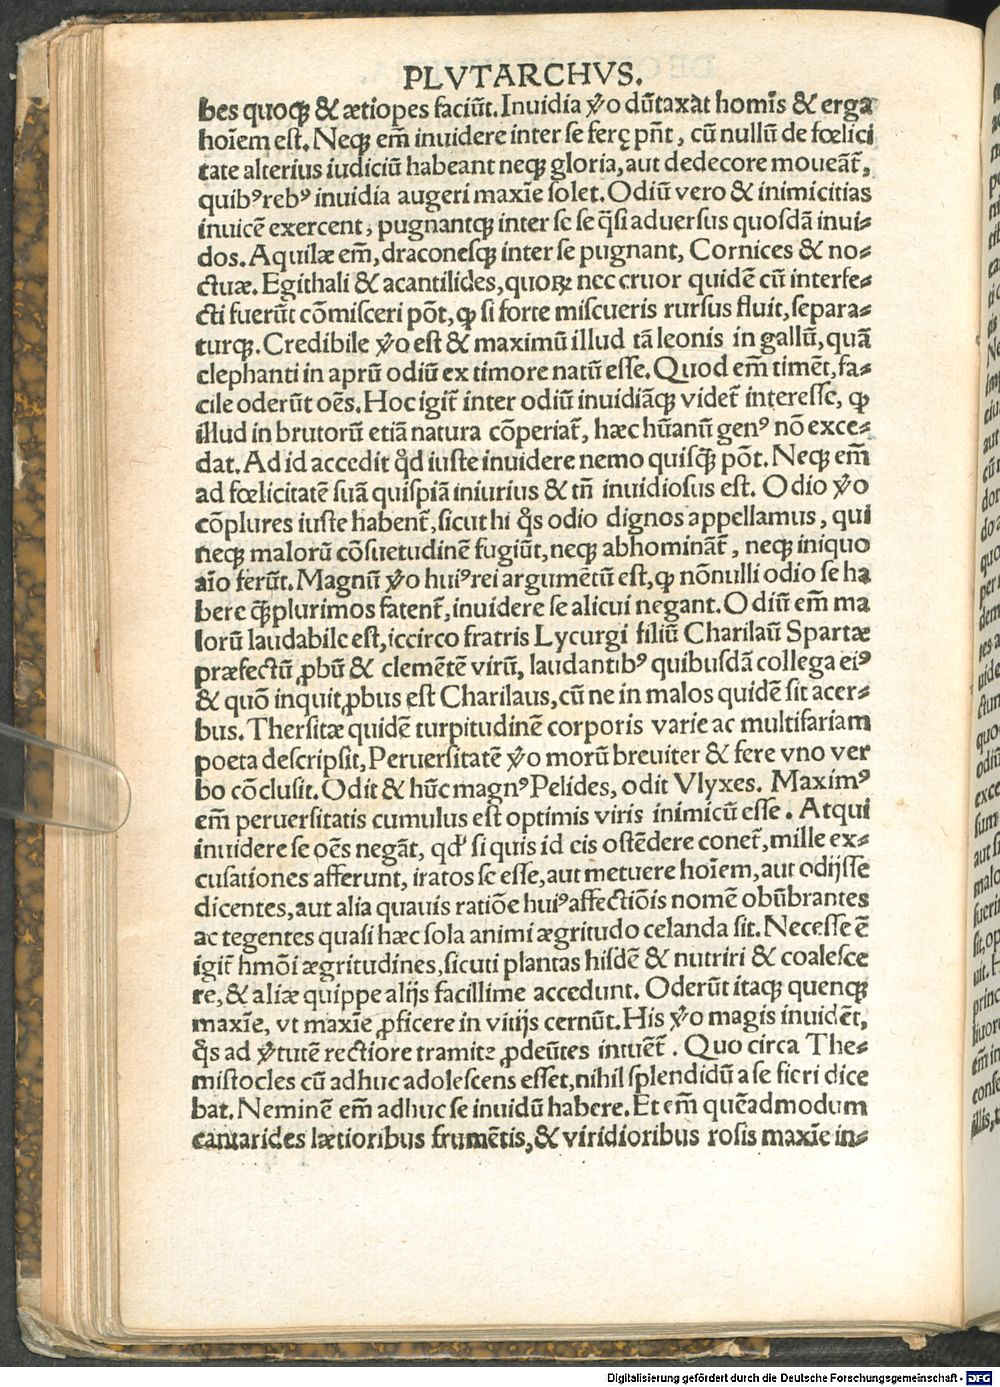 PLVTARCHVS.
bes quoqꝫ & ætiopes faciūt. Inuidia ꝟo dūtaxat homīs & erga
hoīem est. Neqꝫ em̄ inuidere inter se ferę pn̄t, cū nullū de fœlici
tate alterius iudiciū habeant neqꝫ gloria, aut dedecore moueāt᷑,
quibꝰ rebꝰ inuidia augeri maxīe solet. Odiū vero & inimicitias
inuicē exercent, pugnantqꝫ inter se se q̄si aduersus quosdā inui⸗
dos. Aquilæ em̄, draconesqꝫ inter se pugnant, Cornices & no⸗
ctuæ. Egithali & acantilides, quoꝝ nec cruor quidē cū interfe⸗
cti fuerūt cōmisceri pōt, ꝙ si forte miscueris rursus fluit, separa⸗
turqꝫ. Credibile ꝟo est & maximū illud tā leonis in gallū, quā
elephanti in aprū odiū ex timore natū esse. Quod em̄ timēt, fa⸗
cile oderūt oēs. Hoc igit᷑ inter odiū inuidiāqꝫ videt᷑ interesse, ꝙ
illud in brutorū etiā natura cōperiat᷑, hæc hūanū genꝰ nō exce⸗
dat. Ad id accedit q̇d iuste inuidere nemo quisq̄ꝫ pōt. Neqꝫ em̄
ad fœlicitatē suā quispiā iniurius & tn̄ inuidiosus est. Odio ꝟo
cōplures iuste habent᷑, sicut hi q̇s odio dignos appellamus, qui
neqꝫ malorū cōsuetudinē fugiūt, neqꝫ abhomināt᷑, neqꝫ iniquo
aīo ferūt. Magnū ꝟo huiꝰ rei argumētū est, ꝙ nōnulli odio se ha
bere q̄ꝫplurimos fatent᷑, inuidere se alicui negant. Odiū em̄ ma
lorū laudabile est, iccirco fratris Lycurgi filiū Charilaū Spartæ
præfectū ꝓbū & clemētē virū, laudantibꝰ quibusdā collega eiꝰ
& quō inquit ꝓbus est Charilaus, cū ne in malos quidē sit acer⸗
bus. Thersitæ quidē turpitudinē corporis varie ac multifariam
poeta descripsit, Peruersitatē ꝟo morū breuiter & fere vno ver
bo cōclusit. Odit & hūc magnꝰ Pelides, odit Vlyxes. Maximꝰ
em̄ peruersitatis cumulus est optimis viris inimicū esse. Atqui
inuidere se oēs negāt, qd' si quis id eis ostēdere conet᷑, mille ex⸗
cusationes afferunt, iratos se esse, aut metuere hoīem, aut odijsse
dicentes, aut alia quauis ratiōe huiꝰ affectiōis nomē obūbrantes
ac tegentes quasi hæc sola animi ægritudo celanda sit. Necesse ē
igit᷑ hmōi ægritudines, sicuti plantas hisdē & nutriri & coalesce
re, & aliæ quippe alijs facillime accedunt. Oderūt itaqꝫ quenqꝫ
maxīe, vt maxīe ꝓficere in vitijs cernūt. His ꝟo magis inuidēt,
q̇s ad ꝟtutē rectiore tramite ꝓdeūtes intuēt᷑. Quo circa The⸗
mistocles cū adhuc adolescens esset, nihil splendidū a se fieri dice
bat. Neminē em̄ adhuc se inuidū habere. Et em̄ quēadmodum
cantarides lætioribus frumētis, & viridioribus rosis maxīe in⸗
Digitalisierung gefördert durch die Deutsche Forschungsgemeinschaft - DFG